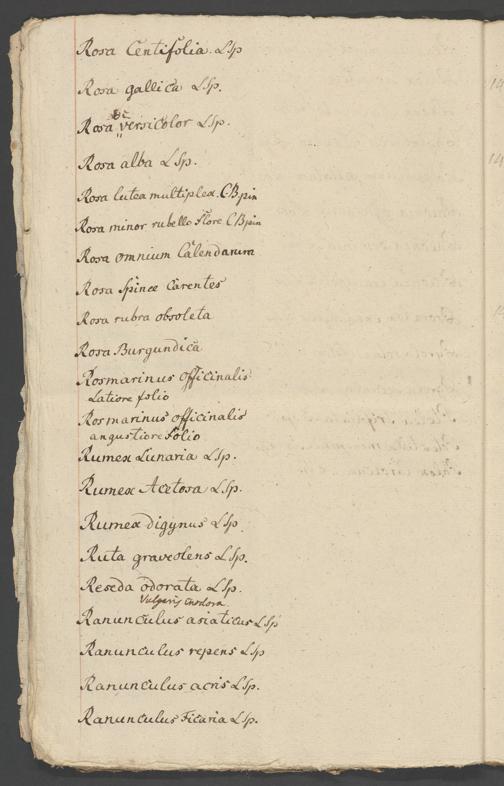 Rosa Centifolia. LSp
Rosa gallica LSp.
Rosa versicolor LSp.
Rosa alba LSp.
Rosa lutea multiplex. C.B.pin
Rosa minor rubello flore C.B.pin
Rosa omnium Calendarum
Rosa Spinæ Carentes
Rosa rubra obsoleta
Rosa Burgundica
Rosmarinus officinalis
Latiore folio
Rosmarinus officinalis
angustiore Folio
Rumex Lunaria LSp.
Rumex Acetosa LSp.
Rumex digynus LSp.
Ruta graveolens LSp.
Reseda odorata LSp.
Vulgaris inodora.
Ranunculus asiaticus LSp
Ranunculus repens LSp
Ranunculus acris LSp.
Ranunculus Ficaria LSp.